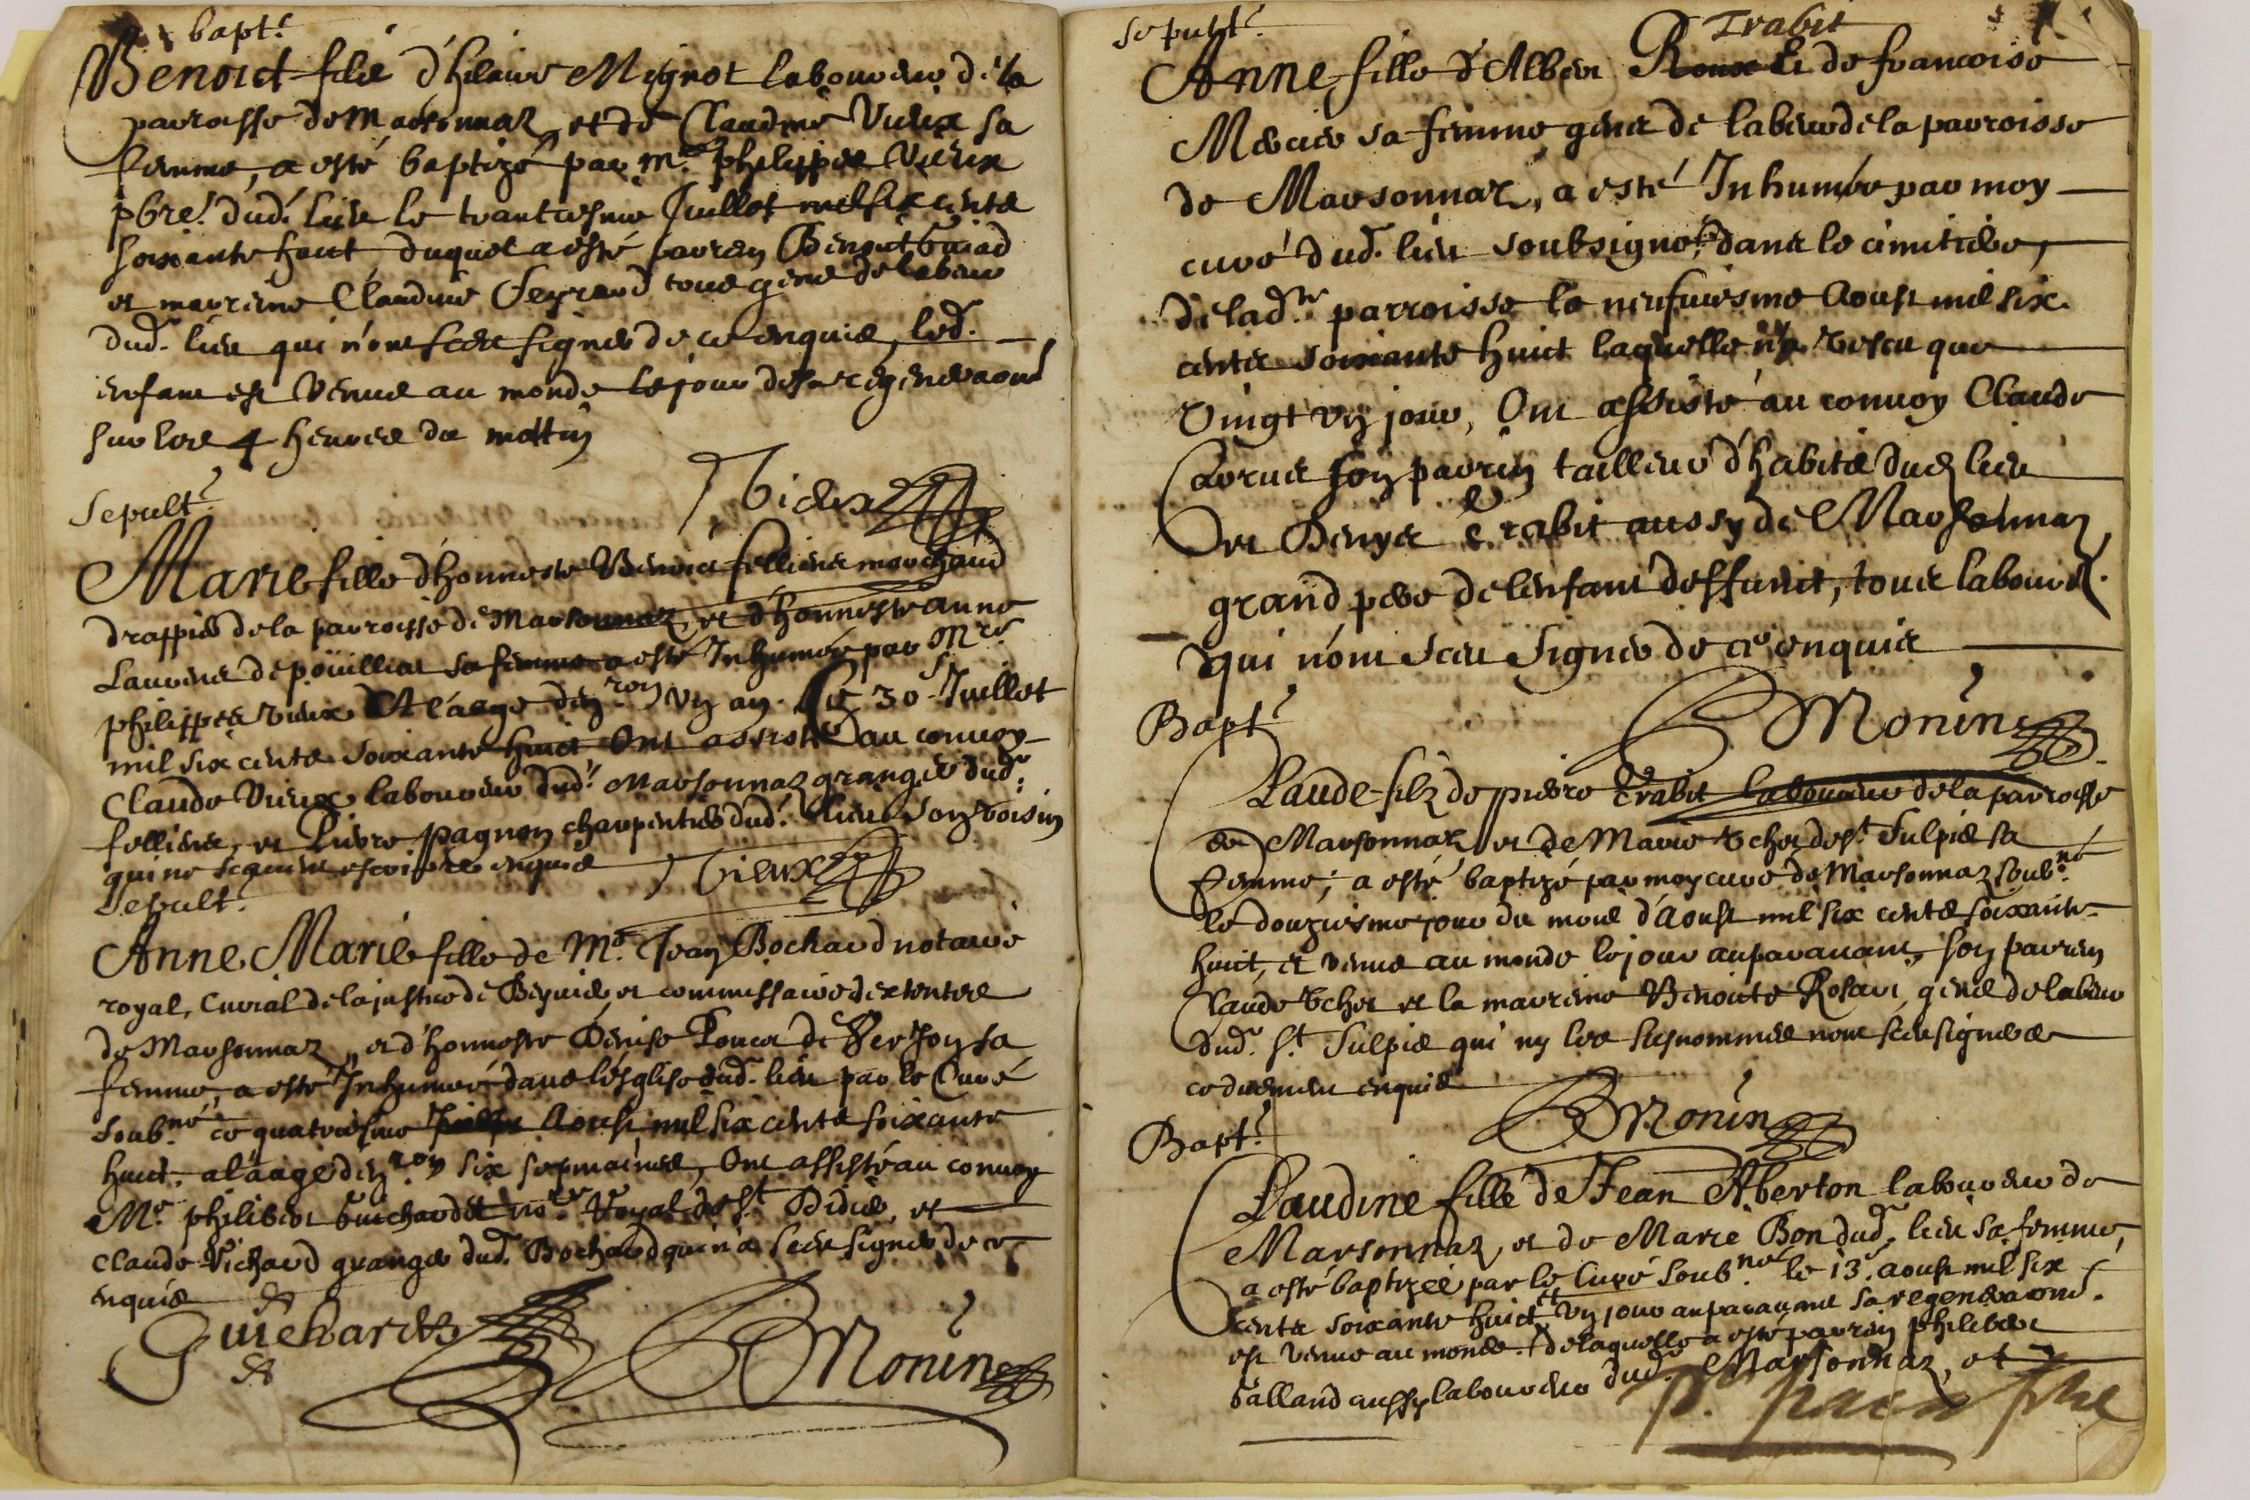 bapt.
Benoict filz d'hilaire Mignot laboureur de la
parroisse de Marsonnaz, et de Claudine Vieux sa
femme, a esté baptizé par Mre. philippes Vieux
pbre. dud. lieu le trantiesme Juillet mil six cents
soixante huit duquel a esté parrin Benoict
et marrine Claudine Feyraud tous gens de labeur
dud. lieu qui n'ont sceu signer de ce enquis, led.
enfant est venus au monde le jour de sa regeneraon
sur les 4 heures du mattin
Vieux
Sepult.
Marie fille d'honneste Benoict felliens marchand
drappier de la parroisse de Marsonnaz, et d'honneste anne
Laurens de poüilliat sa femme a esté Inhumée par Mre
philippes vieux A l'aage d'en.ron un an. Ce 30 Juillet
mil six cents soixante huict Ont assisté au convoy
Claude Vieux laboureur dud. Marsonnaz granger dud.
felliens, et Pierre pagnon charpentier dud. lieu son voisin
qui ne scavent escoire enquis Vieux
Sepult.
Anne Marie fille de Me. Jean Bochard notaire
royal, Curial de la justice de Beyvier et commissaire
de Marsonnaz, et d'honneste Denise Poncet de sa
femme, a esté Inhumée dans l'esglise dud. lieu par le Curé
soub.né ce quatriesme Juillet Aoust mil six cents soixante
huit. a l'aage d'en.ron six sepmaines, Ont assisté au convoy
Me. philibert Guichardet no.re Royal de St. Didier, et
Claude Vichard granger dud. Bochard qui n'a sceu signer de ce
enquis
Guichardet Monin
Sepult.
Trabit
Anne fille d'Albert Roux Et de francoise
Mercier sa femme gens de labeur de la parroisse
de Marsonnaz, a esté Inhumée par moy
curé dud. lieu soubsigné, dans le cimitiere,
de lad.te parroisse le neufviesme Aoust mil six
cents soixante huict laquelle n'a vescu que
Vingt un jour, Ont assisté au convoy Claude
Cornet son parrin tailleur d'habits dud. lieu
et Denys Trabit aussy de Marsonnaz
grand pere de l'enfant deffunct, tous labour.
qui n'ont sceu signer de ce enquis
Monin
Bapt.
Claude filz de pierre Trabit laboureur de la parroisse
de Marsonnaz et de Marie de St. Sulpis sa
femme; a esté baptizé par moy curé de Marsonnaz soub.né
le douziesme jour du mois d'Aoust mil six cents soixante
huict, et venus au monde le jour auparavant, son parrin
Claude et la marrine Benoite gens de labeur
dud. St. Sulpis qui ny les susnommés nont sceu signer de
ce duement enquis
Monin
Bapt.
Claudine fille de Jean Aberton laboureur de
Marsonnaz, et de Marie Bon dud. lieu sa femme,
a esté baptizée par le Curé soub.né le 13e. aoust mil six
cents soixante huict et un jour auparavant sa regeneraon.
est venue au monde. de laquelle a esté parrin philibert
Galland aussy laboureur dud. Marsonnaz, et